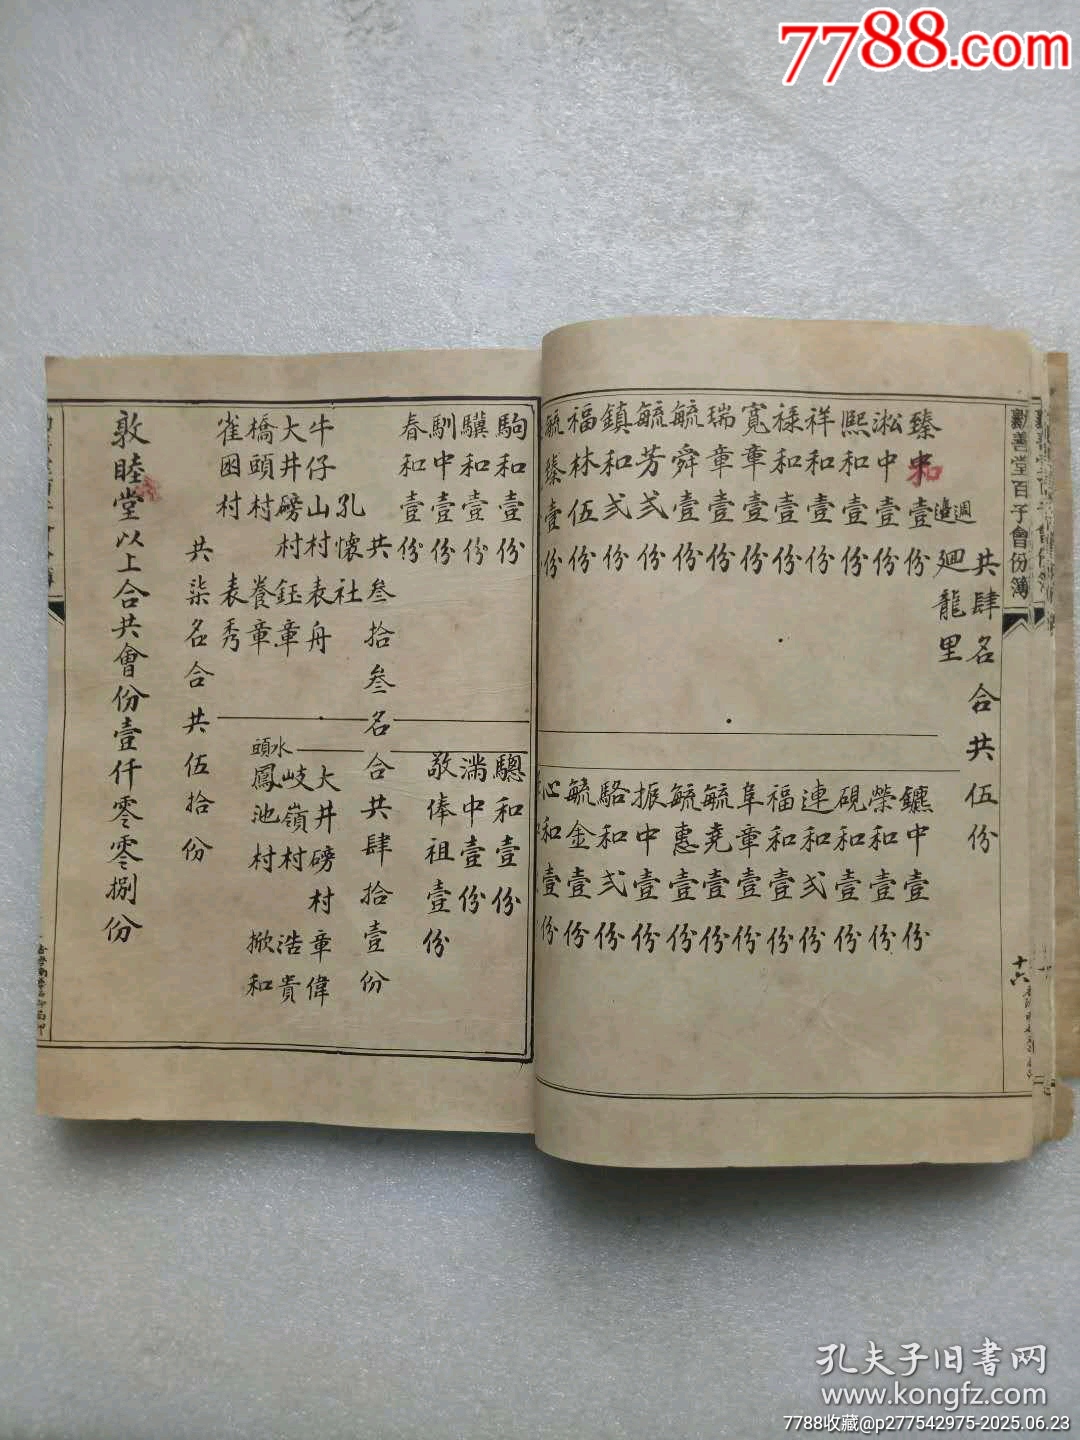 7788.com
勸善堂百子會份簿
十六
共肆名合共伍份
週邊
廻龍里
臻中壹份
和
淞中壹份
熙和壹份
祥和壹份
禄和壹份
寬章壹份
瑞章壹份
毓舜壹份
毓芳弍份
鎮和弍份
福林伍份
毓臻壹份
鑣中壹份
榮和壹份
硯和壹份
連和弍份
福和壹份
阜章壹份
毓堯壹份
毓惠壹份
振中壹份
駱和弍份
毓金壹份
心和壹份
駒和壹份
驥和壹份
馴中壹份
春和壹份
驄和壹份
滿中壹份
敬俸祖壹份
共叁拾叁名合共肆拾壹份
孔懷社
牛仔山村 表舟
大井磅村 鈺章
橋頭村 養章
雀囷村 表秀
大井磅村 章偉
岐嶺村 浩貴
水頭鳳池村 掀和
共柒名合共伍拾份
敦睦堂以上合共會份壹仟零零捌份
孔夫子旧书网
www.kongfz.com
7788收藏@p277542975-2025.06.23